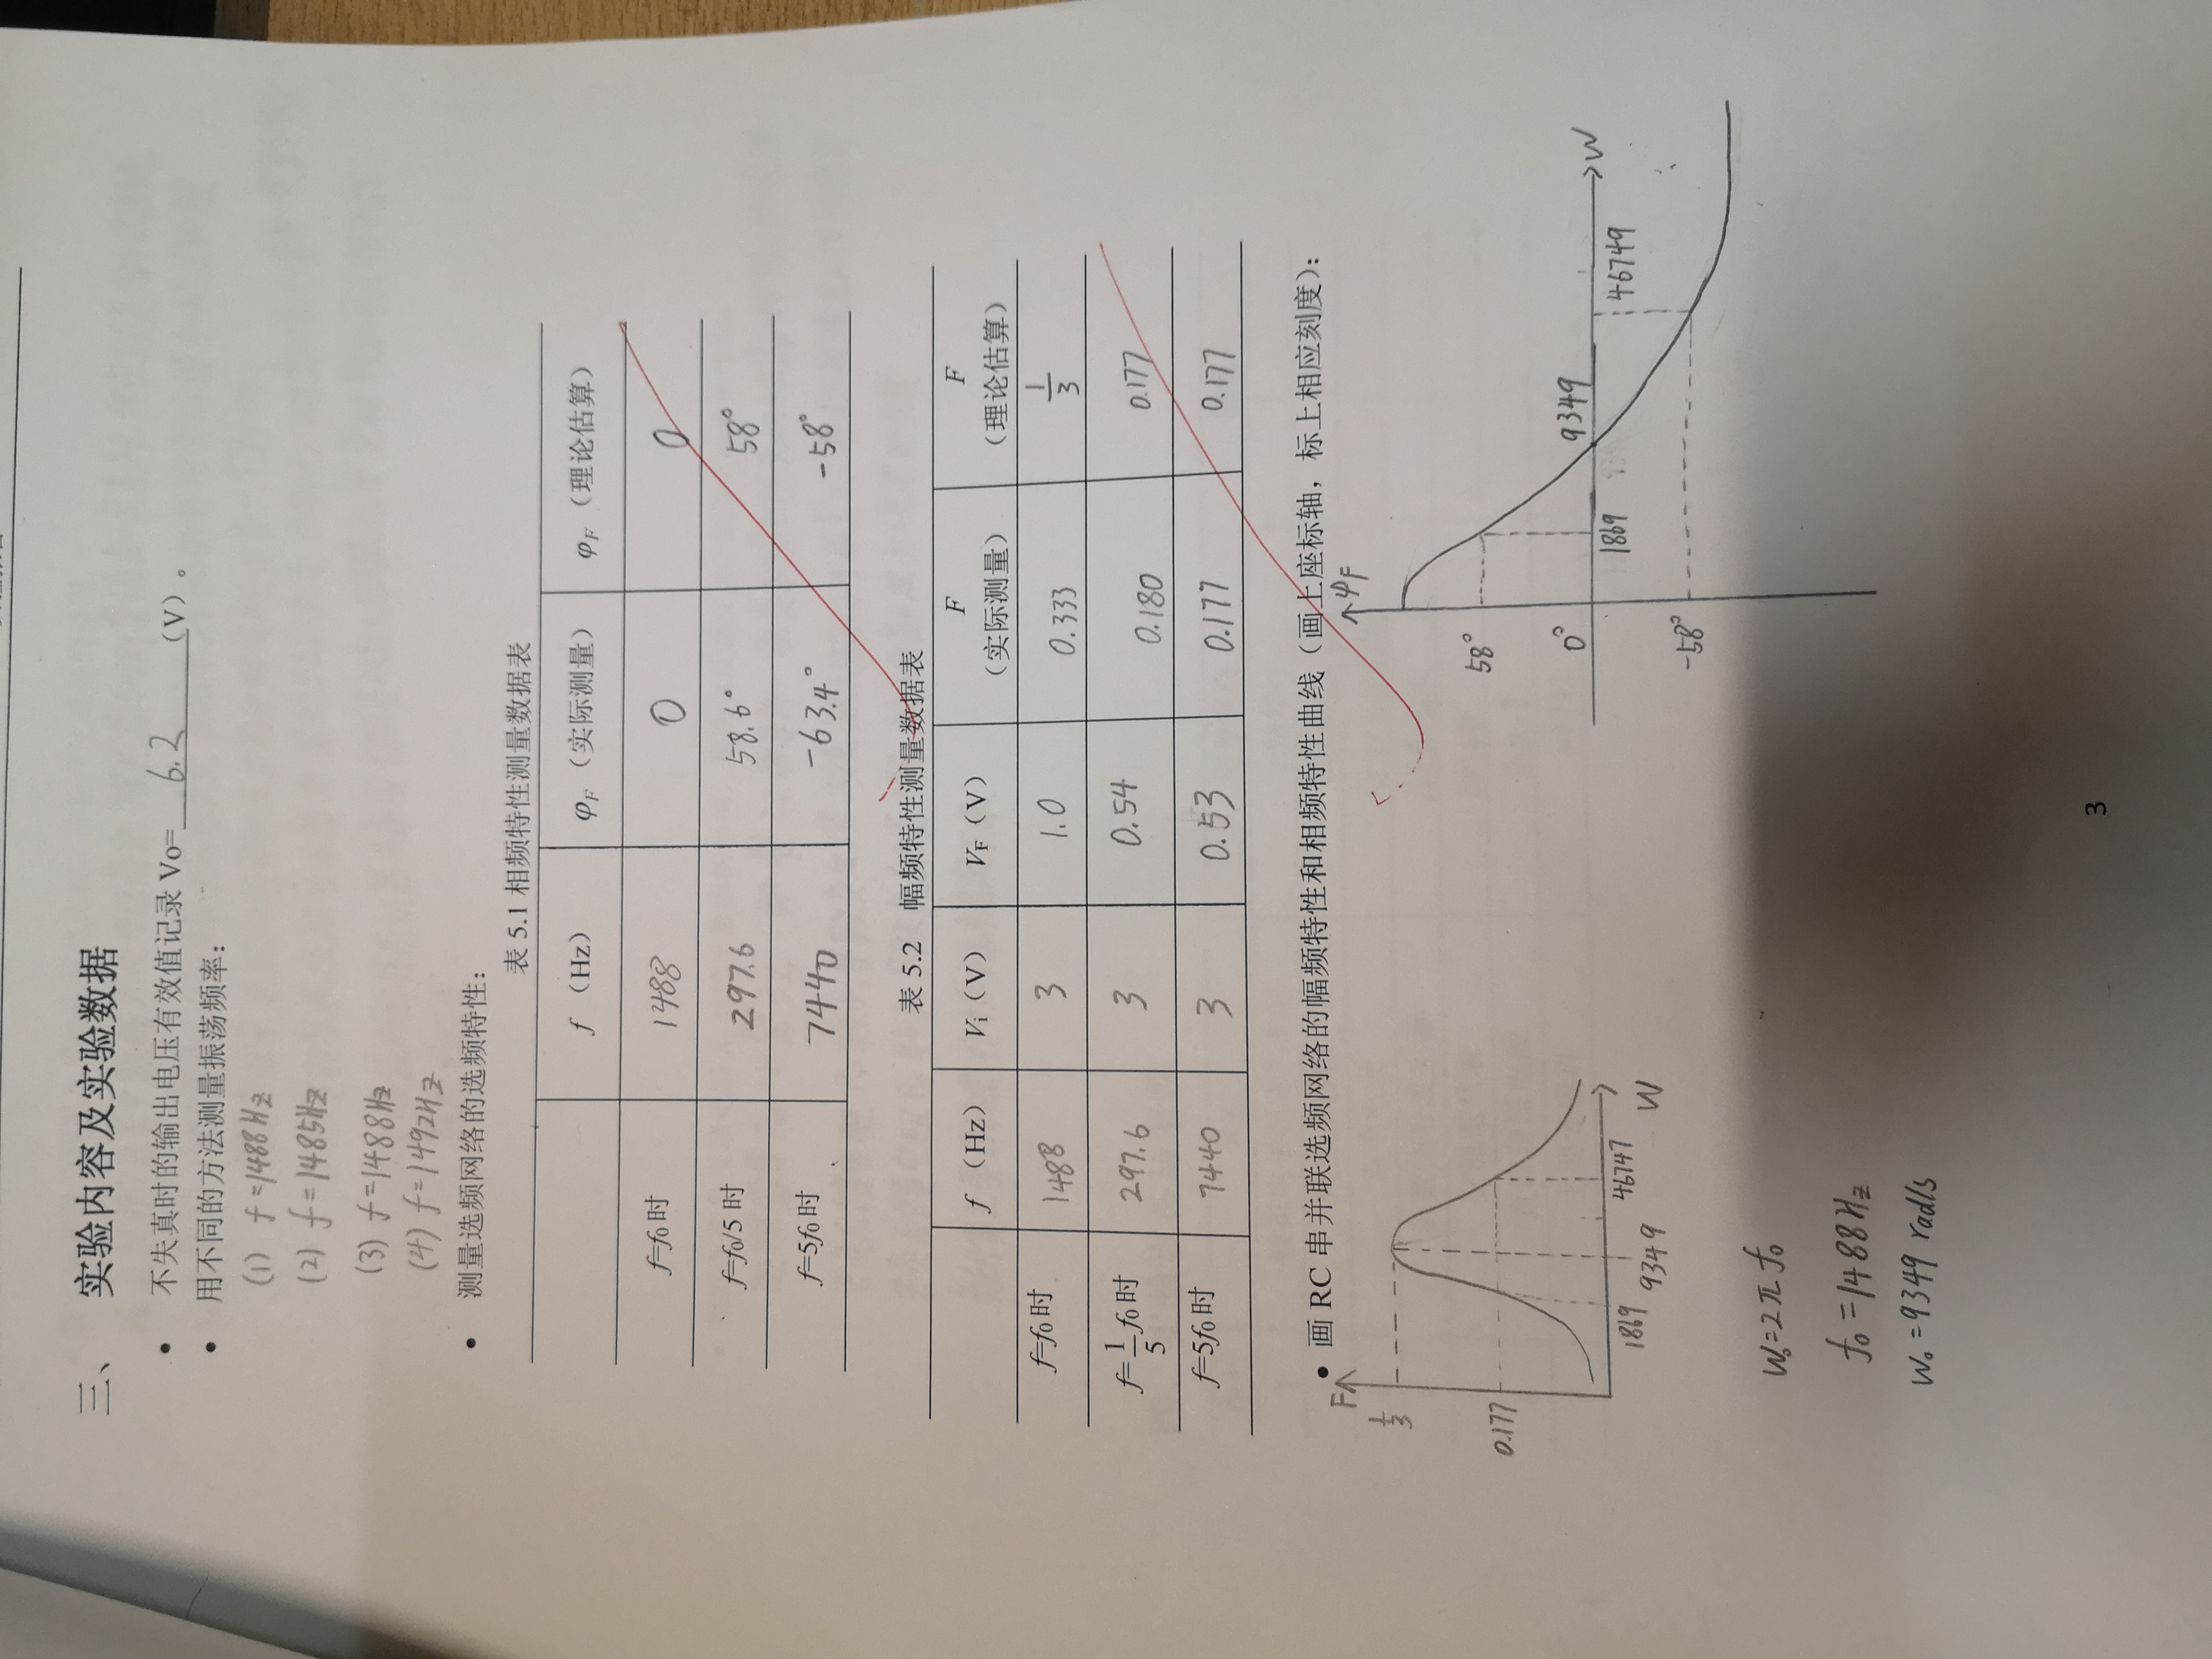 三、 实验内容及实验数据
• 不失真时的输出电压有效值记录 Vo= 6.2 (V)。
• 用不同的方法测量振荡频率：
(1) f=1488Hz
(2) f=1485Hz
(3) f=1488Hz
(4) f=1492Hz
• 测量选频网络的选频特性：
表 5.1 相频特性测量数据表
f（Hz） φF（实际测量） φF（理论估算）
f=f0时 1488 0 0
f=f0/5 时 297.6 58.6° 58°
f=5f0时 7440 -63.4° -58°
表 5.2 幅频特性测量数据表
f（Hz） Vi（V） VF（V） F（实际测量） F（理论估算）
f=f0时 1488 3 1.0 0.333 1/3
f=1/5 f0时 297.6 3 0.54 0.180 0.177
f=5f0时 7440 3 0.53 0.177 0.177
• 画 RC 串并联选频网络的幅频特性和相频特性曲线（画上座标轴，标上相应刻度）：
F
1/3
0.177
1869 9349 46747 W
φF
58°
0°
-58°
1869 9349 46749 W
W0=2π f0
f0=1488Hz
W0=9349 rad/s
3